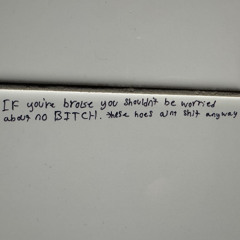 IF you're broise you shouldn't be worried
about no BITCH. these hoes aint shit anyway